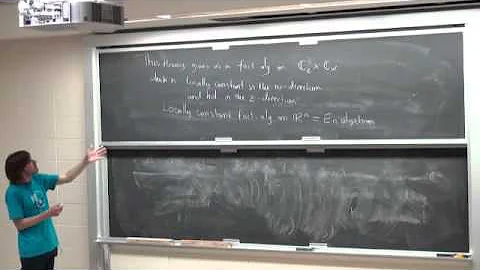 This theory gives us a fact alg on ℂ_z × ℂ_w
which is locally constant in the w-direction
and hol. in the z-direction
Locally constant fact. alg on ℝⁿ = Eₙ algebras